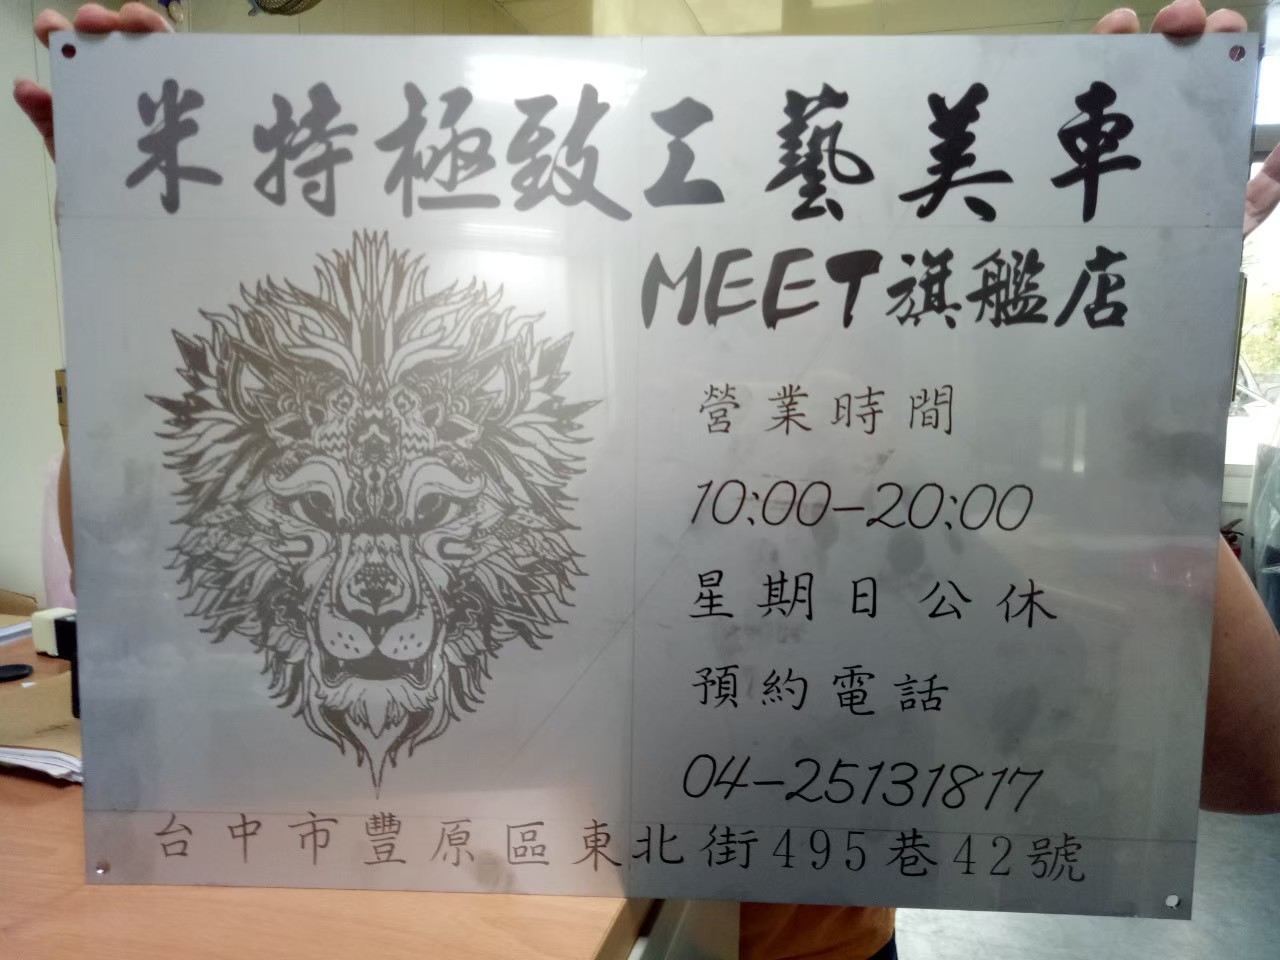 米特極致工藝美車
MEET旗艦店
營業時間
10:00-20:00
星期日公休
預約電話
04-25131817
台中市豐原區東北街495巷42號